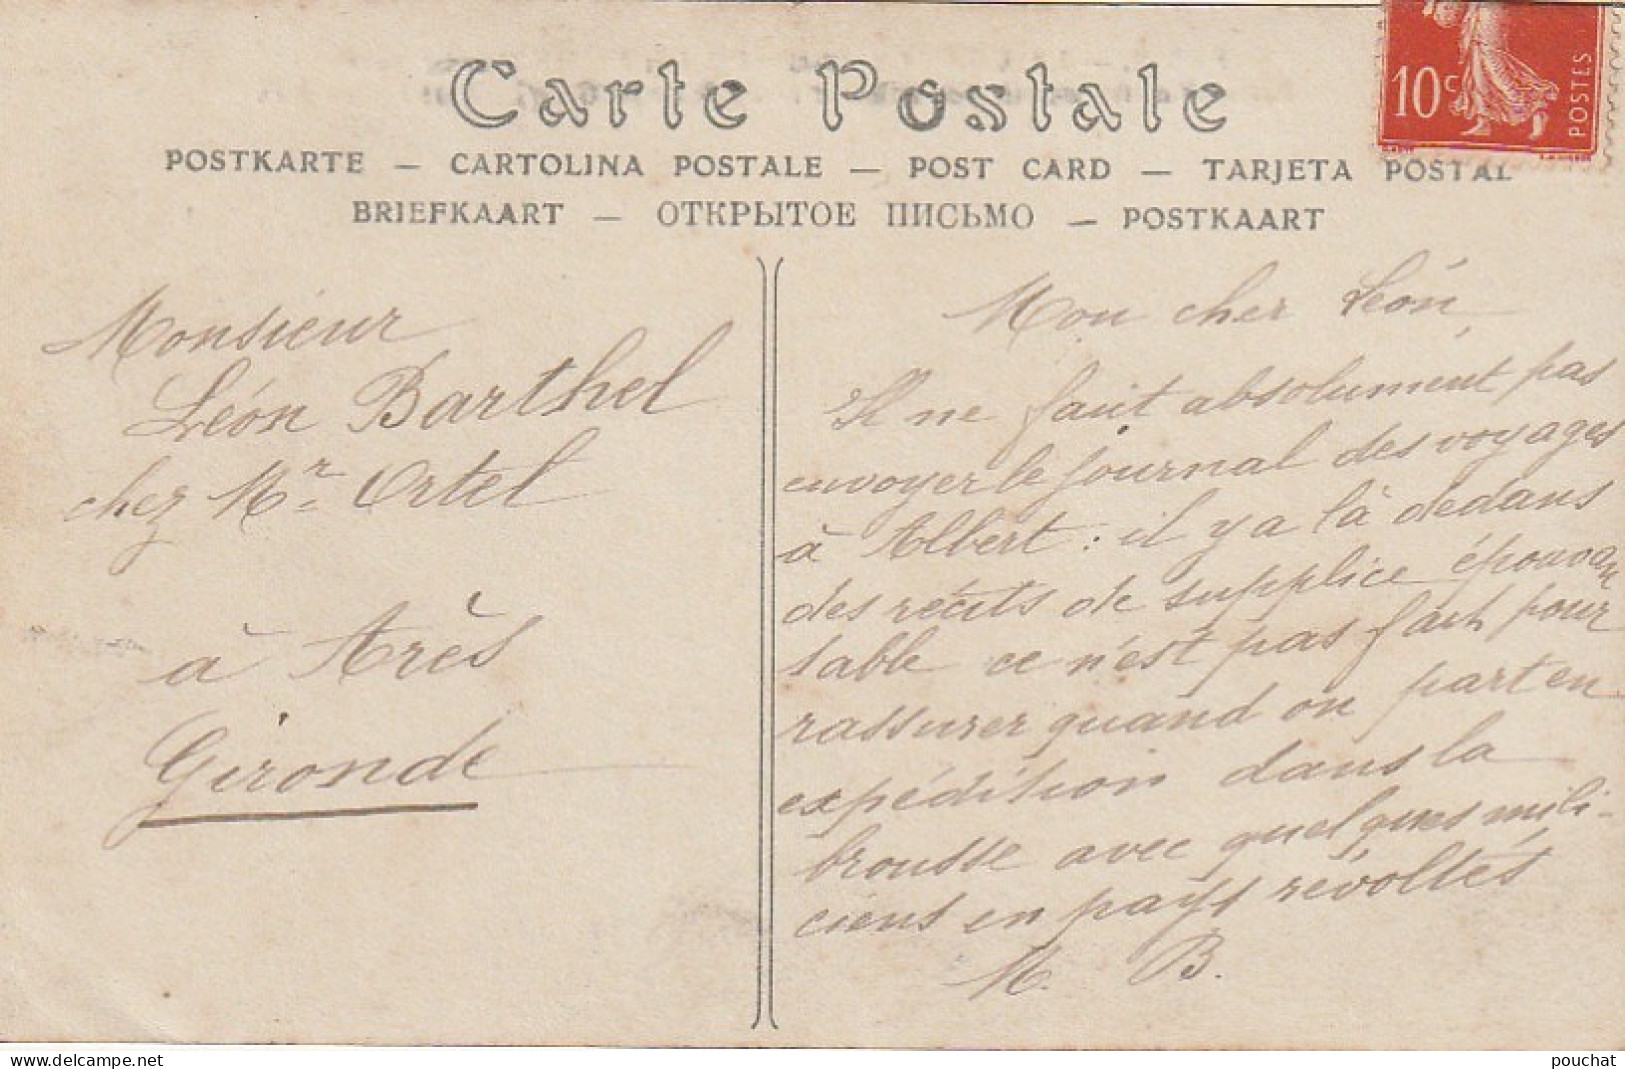 Carte Postale
POSTKARTE — CARTOLINA POSTALE — POST CARD — TARJETA POSTAL
BRIEFKAART — ОТКРЫТОЕ ПИСЬМО — POSTKAART
10c
POSTES
Monsieur
Léon Barthel
chez Mr Ortel
à Arès
Gironde
Mon cher Léon,
Il ne faut absolument pas
envoyer le journal des voyages
à Albert : il y a là dedans
des récits de supplice épouvan
table ce n'est pas fait pour
rassurer quand on part en
expédition dans la
brousse avec quelques mili-
ciens en pays révoltés
M. B.
www.delcampe.net
pouchat